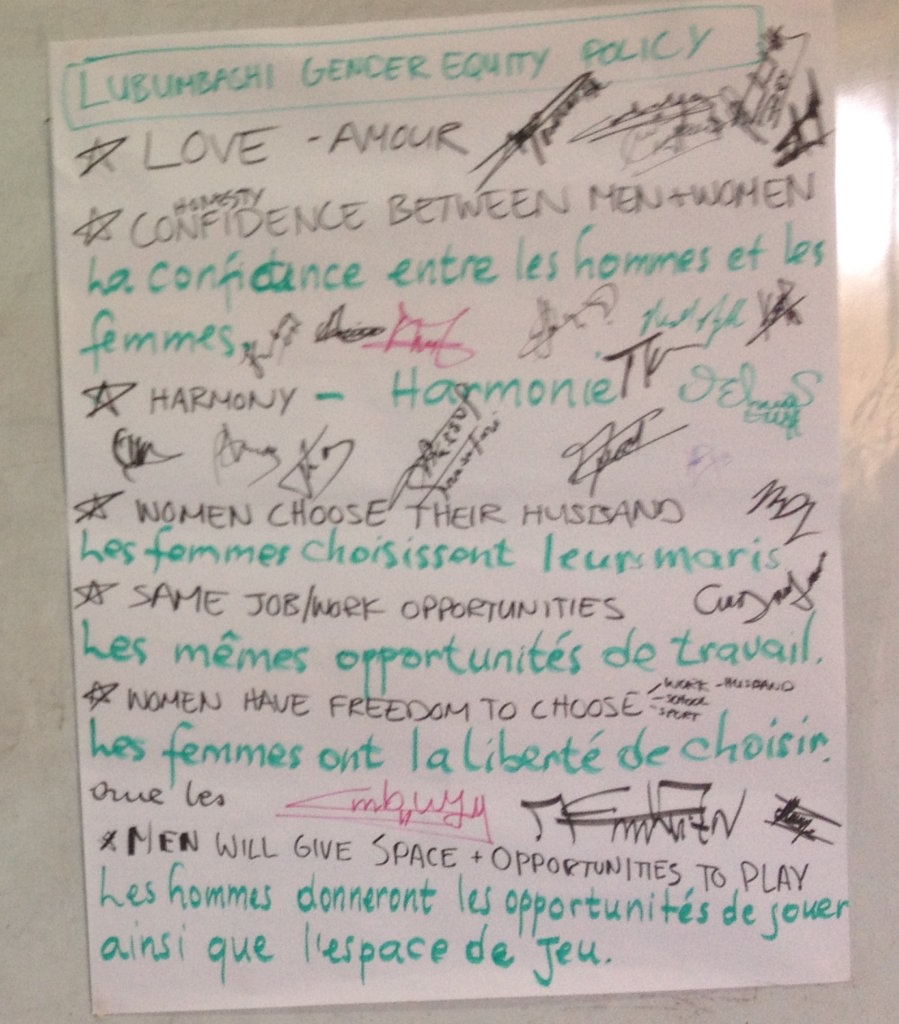 LUBUMBASHI GENDER EQUITY POLICY
LOVE - AMOUR
HONESTY
CONFIDENCE BETWEEN MEN + WOMEN
La confidance entre les hommes et les
femmes.
HARMONY - Harmonie
WOMEN CHOOSE THEIR HUSBAND
Les femmes choisissent leurs maris
SAME JOB/WORK OPPORTUNITIES
Les mêmes opportunités de travail.
WOMEN HAVE FREEDOM TO CHOOSE - WORK - HUSBAND
- SCHOOL
- SPORT
Les femmes ont la liberté de choisir.
que les
MEN WILL GIVE SPACE + OPPORTUNITIES TO PLAY
Les hommes donneront les opportunités de jouer
ainsi que l'espace de jeu.